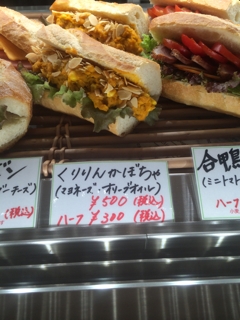 パン
ダーチーズ)
(税込)
(税込)
くりりんかぼちゃ
(マヨネーズ・オリーブオイル)
¥500(税込)
ハーフ ¥300(税込)
合鴨
(ミニトマト
ハーフ